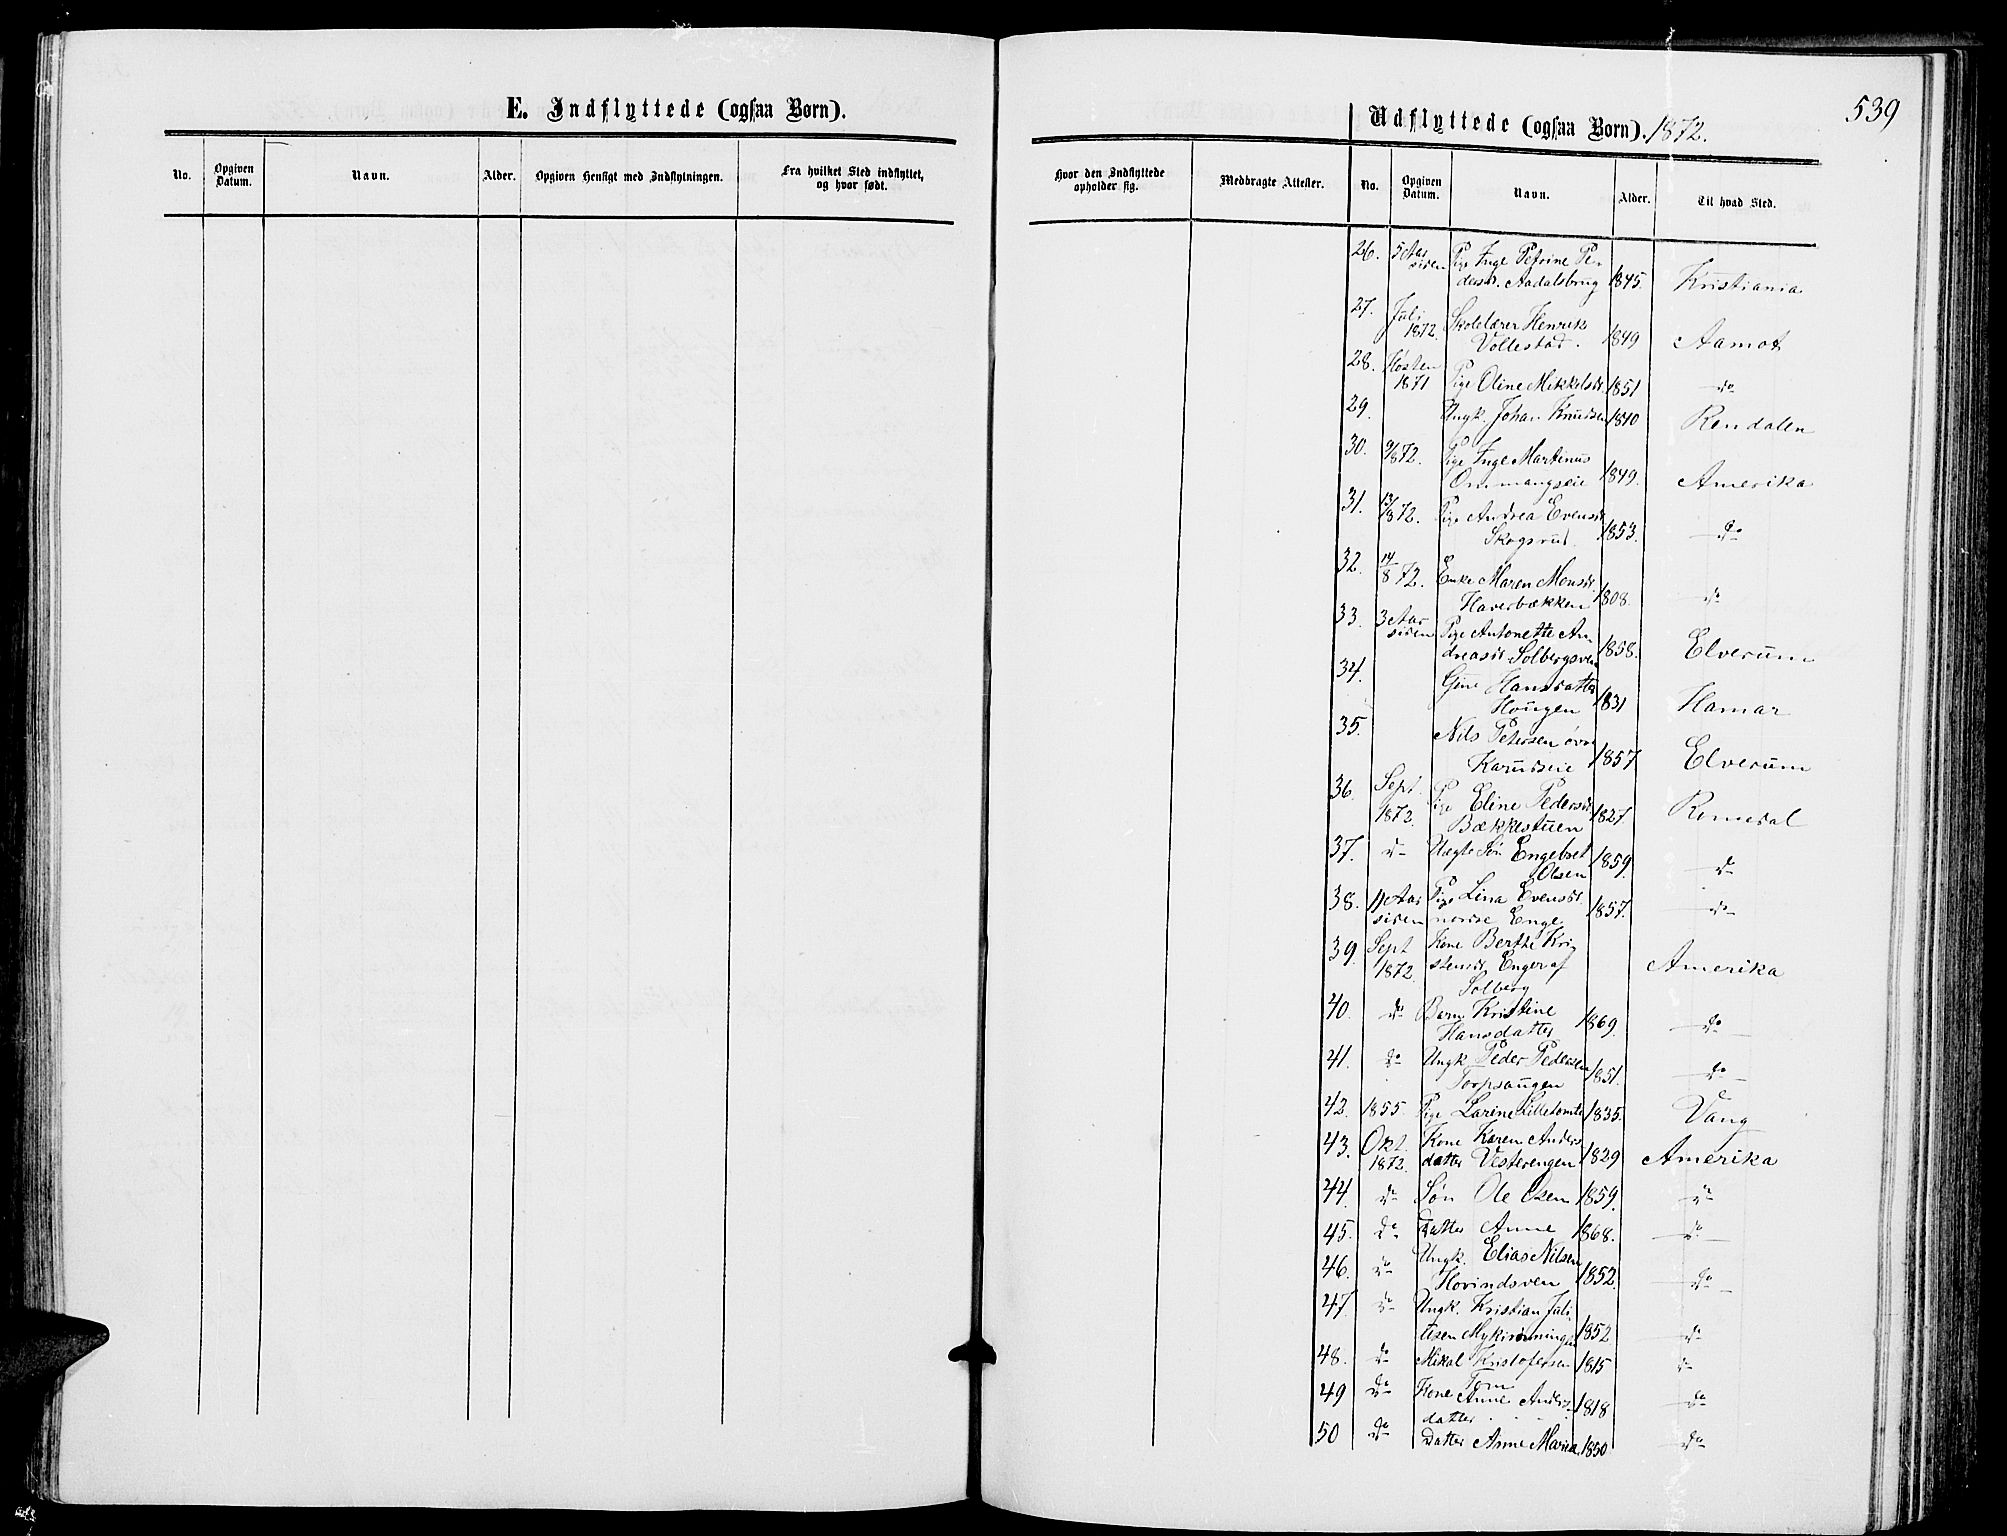 E. Indflyttede (ogsaa Børn).
No. Opgiven Datum. Navn. Alder. Opgiven Hensigt med Indflytningen. Fra hvilket Sted indflyttet, og hvor født.
539
Udflyttede (ogsaa Børn). 1872.
Hvor den Indflyttede opholder sig. Medbragte Attester. No. Opgiven Datum. Navn. Alder. Til hvad Sted.
26. 5 Aar Pige Inge Petrine Pe-
siden dersd. Aadalsbrug 1845. Kristiania
27. Juli Skolelærer Henrik
1872. Vollestad. 1849 Aamot
28. Høsten
1871 Pige Oline Mikkelsd. 1851 do
29. Ungk. Johan Knudsen 1810 Rendalen
30. 9/8 72. Pige Inge Martinus
Ommangseie 1849. Amerika
31. 13/8 72. Pige Andrea Evensd.
Skogsrud. 1853. do
32. 14/8 72. Enke Maren Monsd.
Haverbækken 1808. do
33. 3 Aar Pige Antonette An-
siden dreasd. Solbergsven 1858. Elverum
34. Gine Hansdatter
Hougen 1831 Hamar
35. Nils Petersen øvre
Karudseie 1857 Elverum
36. Sept. Pige Eline Pedersd.
1872. Bækkestuen 1827. Romedal
37. do Uægte Søn Engebret
Olsen 1859. do
38. 11 Aar Pige Lina Evensd.
siden nordre Enge 1857. do
39. Sept Kone Berthe Kri-
1872 stensd. Enger af Amerika
Solberg
40. do Barn Kristine
Hansdatter 1869. do
41. do Ungk. Peder Pedersen
Torpsaugen 1851. do
42. 1855. Pige Larine Lilletomte 1835. Vang
43. Okt. Kone Karen Anders
1872. datter Vesterengen 1829 Amerika
44. do Søn Ole Olsen 1859. do
45. do Datter Anne 1868. do
46. do Ungk. Elias Nilsen
Hovindsven 1852. do
47. do Ungk. Kristian Juli
1852 do
48. do Mikal Kristofersen 1815 do
Tom
49 do Kone Anne Anders- 1818 do
datter
50 do Datter Anne Maria 1850 do